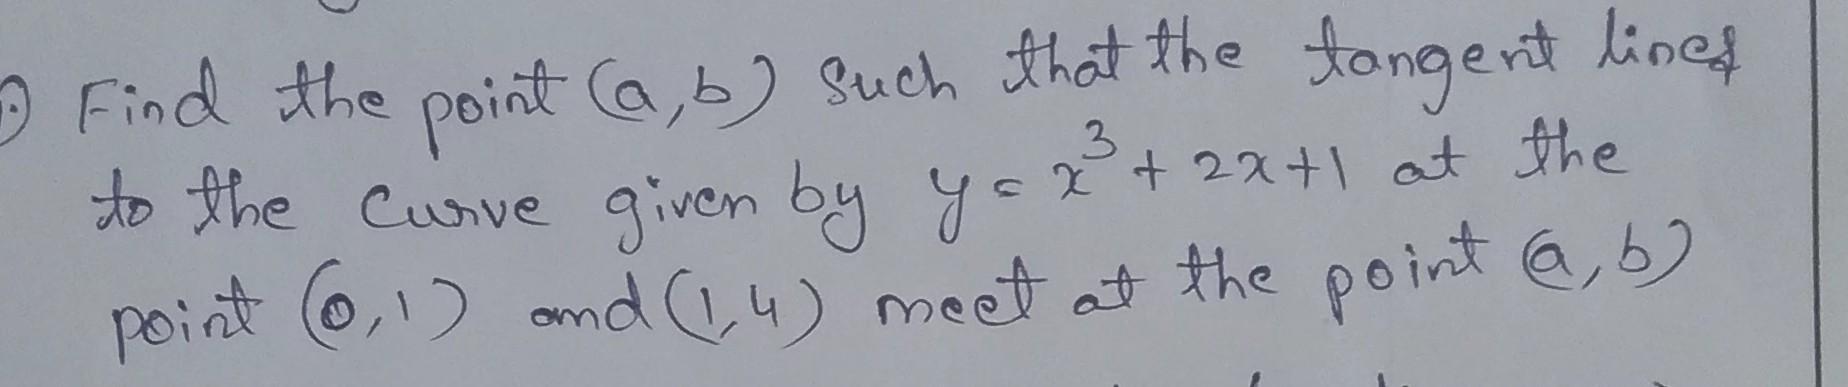 Find the point (a,b) such that the tangent lines
to the curve given by y = x³ + 2x+1 at the
point (0,1) and (1,4) meet at the point (a,b)